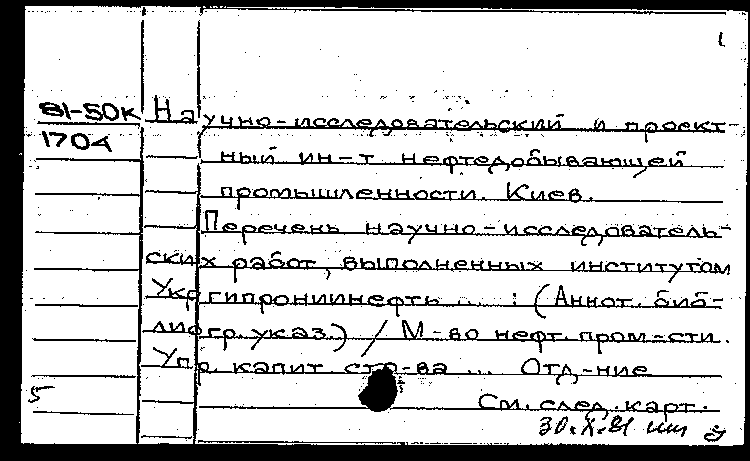 1
81-50К Научно-исследовательский и проект-
1704 ный ин-т нефтедобывающей
промышленности. Киев.
Перечень научно-исследователь-
ских работ, выполненных институтом
Укргипрониинефть ... : (Аннот. биб-
лиогр. указ.) / М-во нефт. пром-сти.
Упр. капит. стр-ва ... Отд-ние
5 См. след. карт.
30.X.81